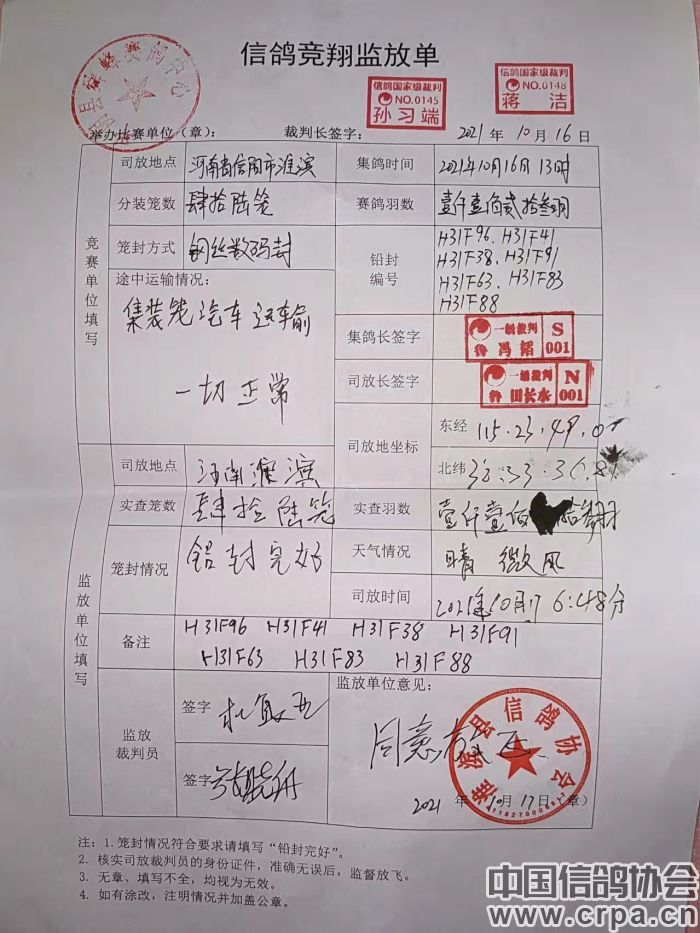 信鸽竞翔监放单
信鸽国家级裁判
NO.0145
孙习端
信鸽国家级裁判
NO.0148
蒋 洁
举办比赛单位（章）： 裁判长签字： 2021 年 10 月 16 日
竞赛单位填写
司放地点 河南省信阳市淮滨 集鸽时间 2021年10月16日 13时
分装笼数 肆拾陆笼 赛鸽羽数 壹仟壹佰贰拾叁羽
笼封方式 钢丝数码封 铅封编号 H31F96、H31F41
H31F38、H31F91
H31F63、H31F83
H31F88
途中运输情况：
集装笼汽车运输
一切正常
集鸽长签字 一级裁判 S
鲁 冯韬 001
司放长签字 一级裁判 N
鲁 田长水 001
司放地坐标 东经 115.23.49.0
北纬 32.33.36.8
监放单位填写
司放地点 河南淮滨
实查笼数 肆拾陆笼 实查羽数 壹仟壹佰 拾叁羽
笼封情况 铅封完好 天气情况 晴 微风
司放时间 2021年10月17 6:48分
备注 H31F96 H31F41 H31F38 H31F91
H31F63 H31F83 H31F88
监放裁判员
签字
签字
监放单位意见：
同意放飞
淮滨县信鸽协会
2021 年 10月17日（章）
注：1. 笼封情况符合要求请填写“铅封完好”。
2. 核实司放裁判员的身份证件，准确无误后，监督放飞。
3. 无章、填写不全，均视为无效。
4. 如有涂改，注明情况并加盖公章。
中国信鸽协会
www.crpa.cn